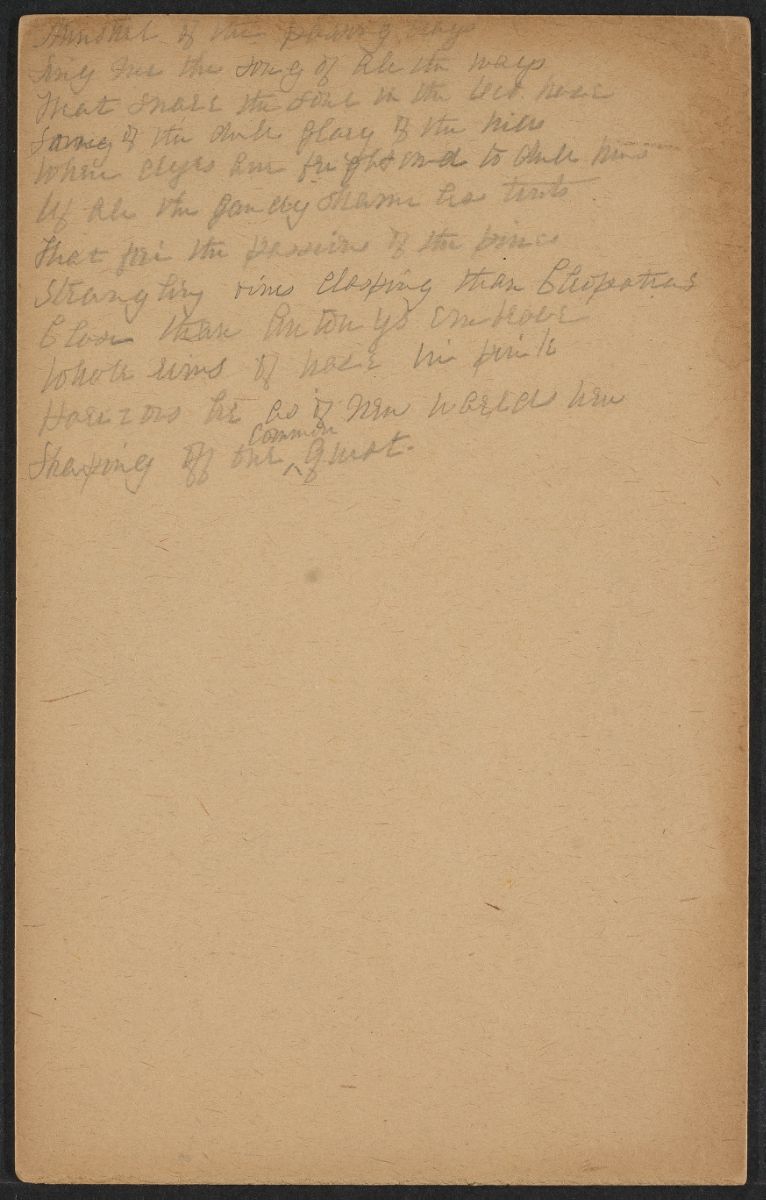 Minstrel of the passing days
Sing me the song of all the ways
That snare the soul in the
Song of the dull glory of the hills
When eyes are frightened to dull
Of all the gaudy shame tints
That for the passion of the pines
Strangling vines clasping than Cleopatras
Closer than Antonys embrace
Whole rims of haze in pink
Horizons lie as if new worlds hew
Shaping off the common quest.